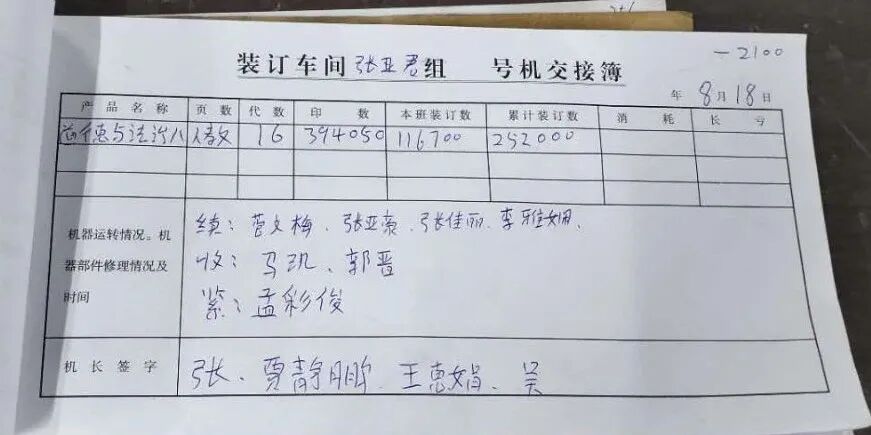 -2100
装订车间 张亚君组 号机交接簿
年 8月18日
产品名称 页数 代数 印数 本班装订数 累计装订数 消耗 长亏
道德与法治八 人教 16 394050 116700 252000
机器运转情况。机器部件修理情况及时间
续：菅文梅、张亚荣、张佳丽、李雅娟、
收：马凯、郭晋
紧：孟彩俊
机长签字
张、贾静鹏、王惠娟、吴